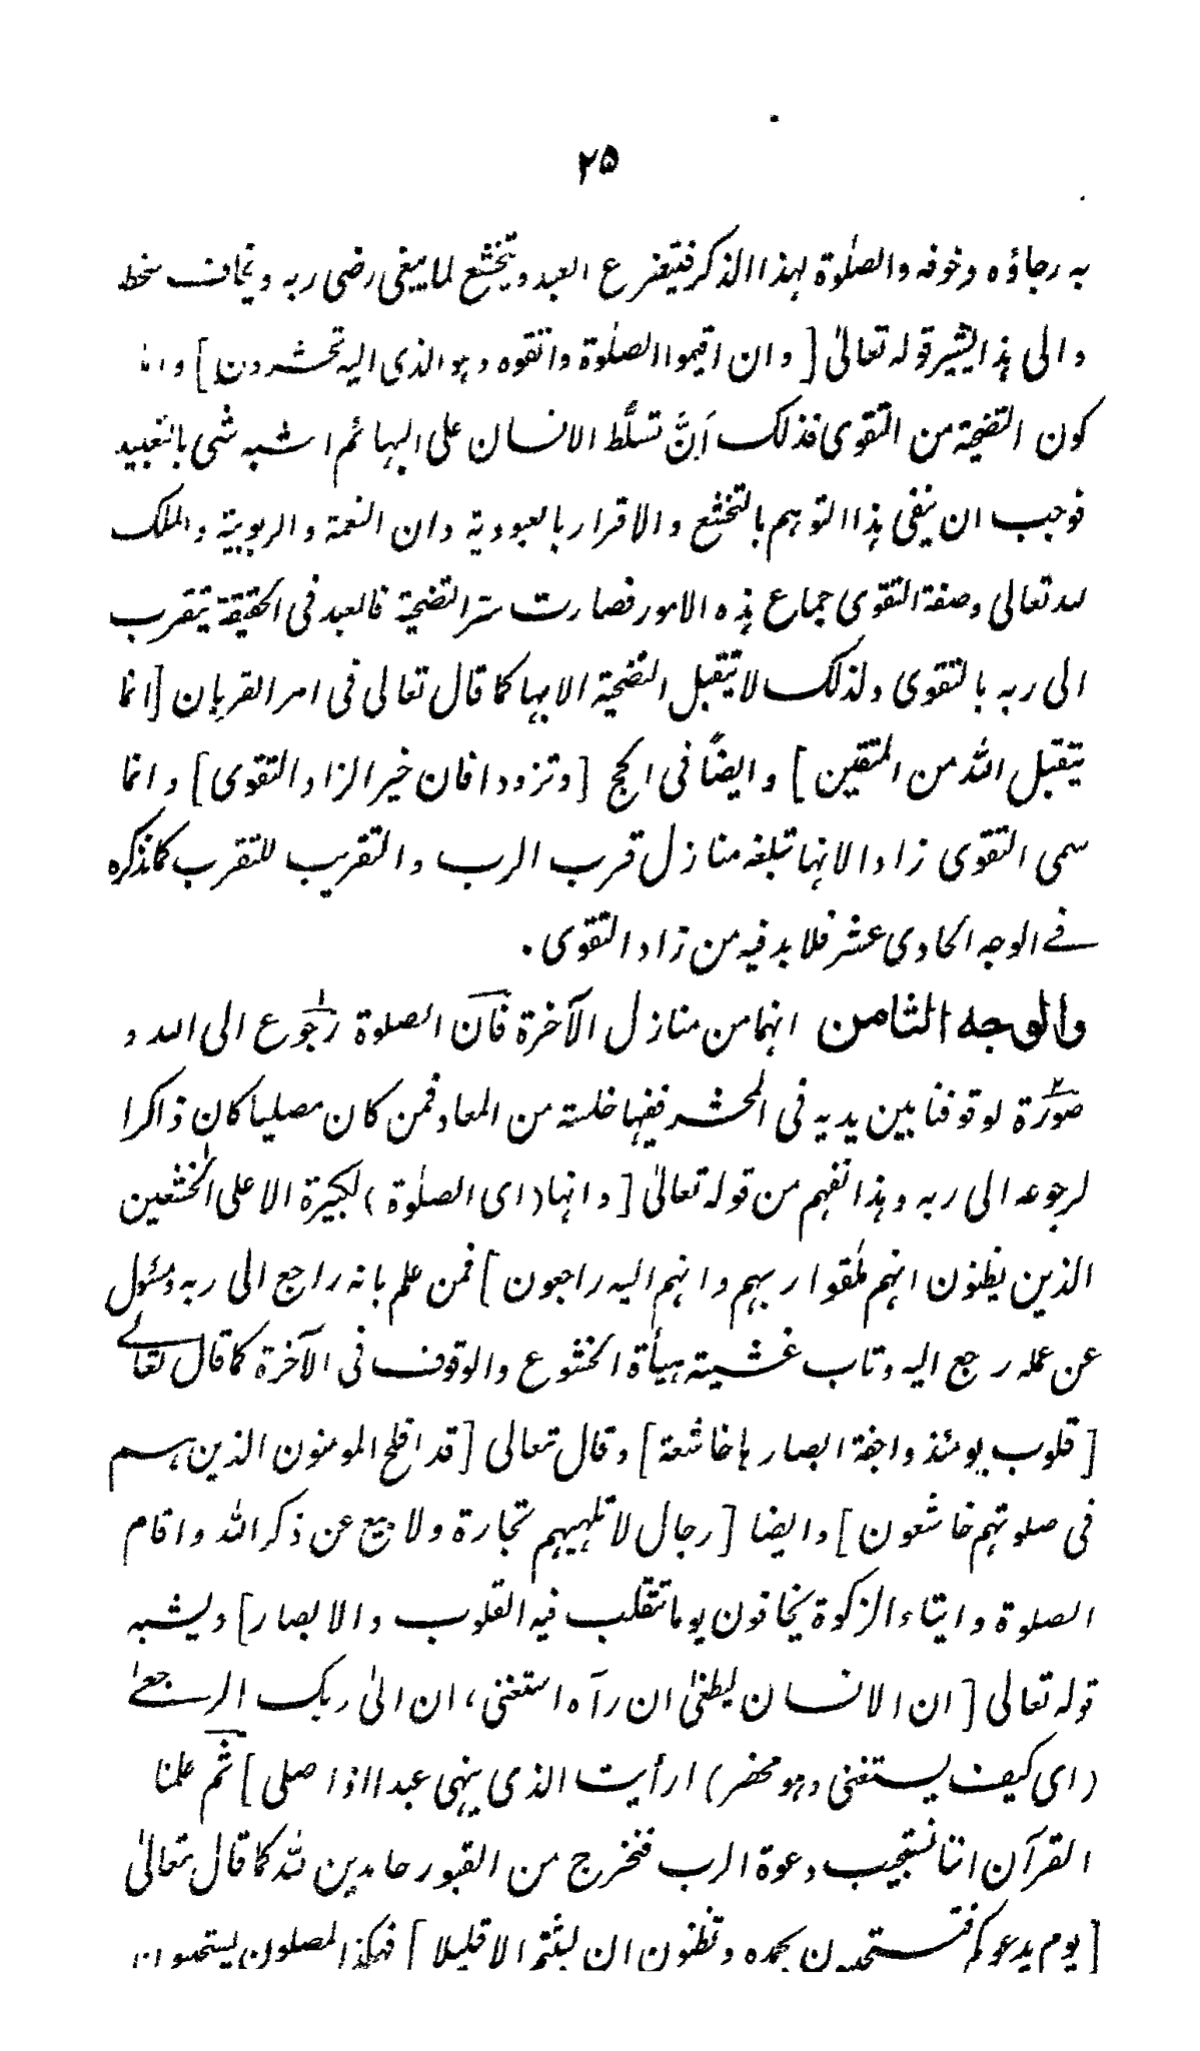 ۲۵
به رجاؤه وخوفه والصلوٰة لهذا الذكر فيتضرع العبد ويتخشع لما يبغى رضى ربه ويخاف سخط
والى هذا يشير قوله تعالىٰ [وان اقيموا الصلوٰة واتقوه وهو الذى اليه تحشرون] واما
كون التضحية من التقوى فذلك اَنَّ تسلُّط الانسان على البهائم اشبه شى بالتعبيد
فوجب ان ينفى هذا التوهم بالتخشع والاقرار بالعبودية وان النعمة والربوبية والملك
لله تعالى وصفة التقوى جماع هذه الامور فصارت سرّ التضحية فالعبد فى الحقيقة يتقرب
الى ربه بالتقوى ولذلك لا تتقبل التضحية الا بها كما قال تعالى فى امر القربان [انما
يتقبل الله من المتقين] وايضاً فى الحج [وتزودوا فان خير الزاد التقوى] وانما
سمى التقوى زادا لانها تبلغه منازل قرب الرب والتقريب للتقرب كما نذكره
فے الوجه الحادى عشر فلا بد فيه من زاد التقوى.
والوجه الثامن انهما من منازل الآخرة فان الصلوة رجوع الى الله و
صورة لوقوفنا بين يديه فى المحشر ففيها خلسة من المعاد فمن كان مصليا كان ذاكرا
لرجوعه الى ربه وهذا نفهم من قوله تعالىٰ [وانها (اى الصلوٰة) لكبيرة الا على الخٰشعين
الذين يظنون انهم ملٰقوا ربهم وانهم اليه راجعون] فمن علم بانه راجع الى ربه ومسئول
عن عمله رجع اليه وتاب غشيته هيأة الخشوع والوقوف فى الآخرة كما قال تعالےٰ
[قلوب يومئذ واجفة ابصارها خاشعة] وقال تعالى [قد افلح المومنون الذين هم
فى صلوتهم خاشعون] وايضا [رجال لا تلهيهم تجارة ولا بيع عن ذكر الله واقام
الصلوة وايتاء الزكوة يخافون يوما تتقلب فيه القلوب والابصار] ويشبه
قوله تعالى [ان الانسان ليطغىٰ ان رآه استغنى، ان الىٰ ربك الرجعےٰ
(اى كيف يستغنى وهو محضر) ارأيت الذى ينهى عبدا اذا صلى] ثم علمنا
القرآن اننا نستجيب دعوة الرب فنخرج من القبور حامدين لله كما قال تعالىٰ
[يوم يدعوكم فتستجيبون بحمده وتظنون ان لبثتم الا قليلا] فهكذا المصلون يستجيبون